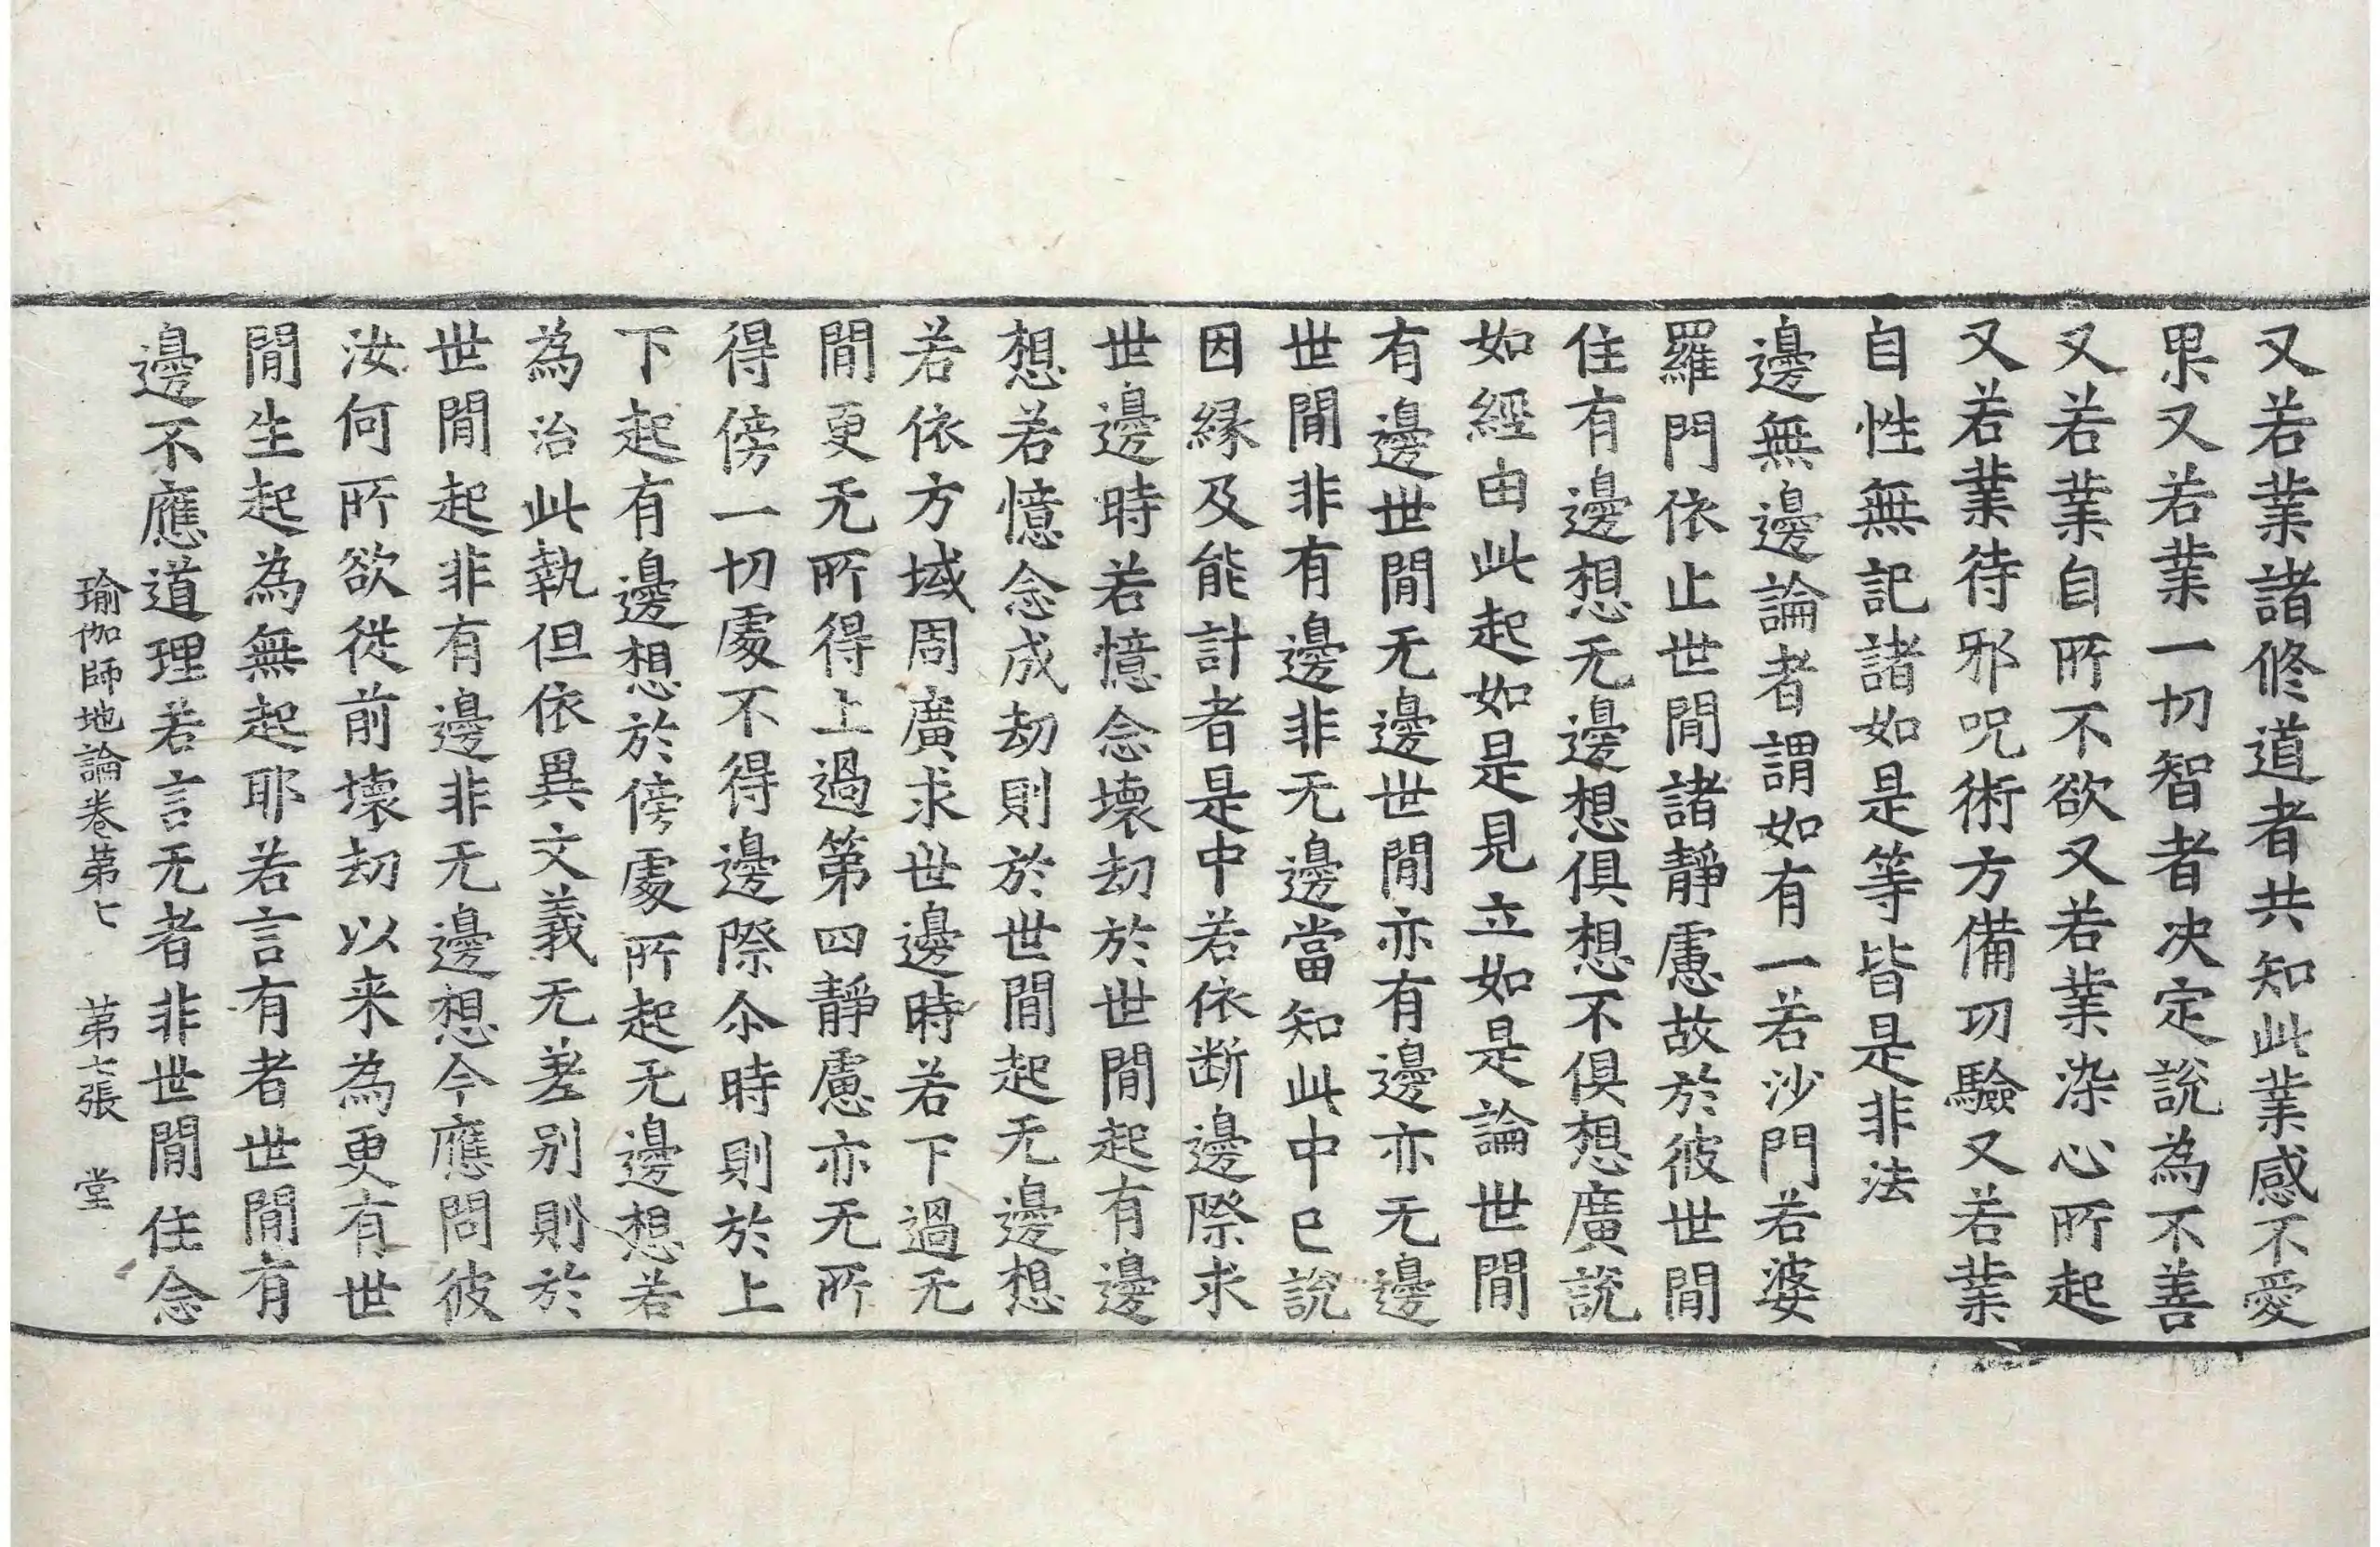 又若業諸修道者共知此業感不愛
果又若業一切智者決定說為不善
又若業自所不欲又若業染心所起
又若業待邪呪術方備功驗又若業
自性無記諸如是等皆是非法
邊無邊論者謂如有一若沙門若婆
羅門依止世間諸靜慮故於彼世間
住有邊想无邊想俱想不俱想廣說
如經由此起如是見立如是論世間
有邊世間无邊世間亦有邊亦无邊
世間非有邊非无邊當知此中已說
因縁及能計者是中若依断邊際求
世邊時若憶念壞劫於世間起有邊
想若憶念成劫則於世間起无邊想
若依方域周廣求世邊時若下過无
間更无所得上過第四靜慮亦无所
得傍一切處不得邊際尒時則於上
下起有邊想於傍處所起无邊想若
為治此執但依異文義无差别則於
世間起非有邊非无邊想今應問彼
汝何所欲從前壞劫以来為更有世
間生起為無起耶若言有者世間有
邊不應道理若言无者非世間住念
瑜伽師地論卷苐七 苐七張 堂